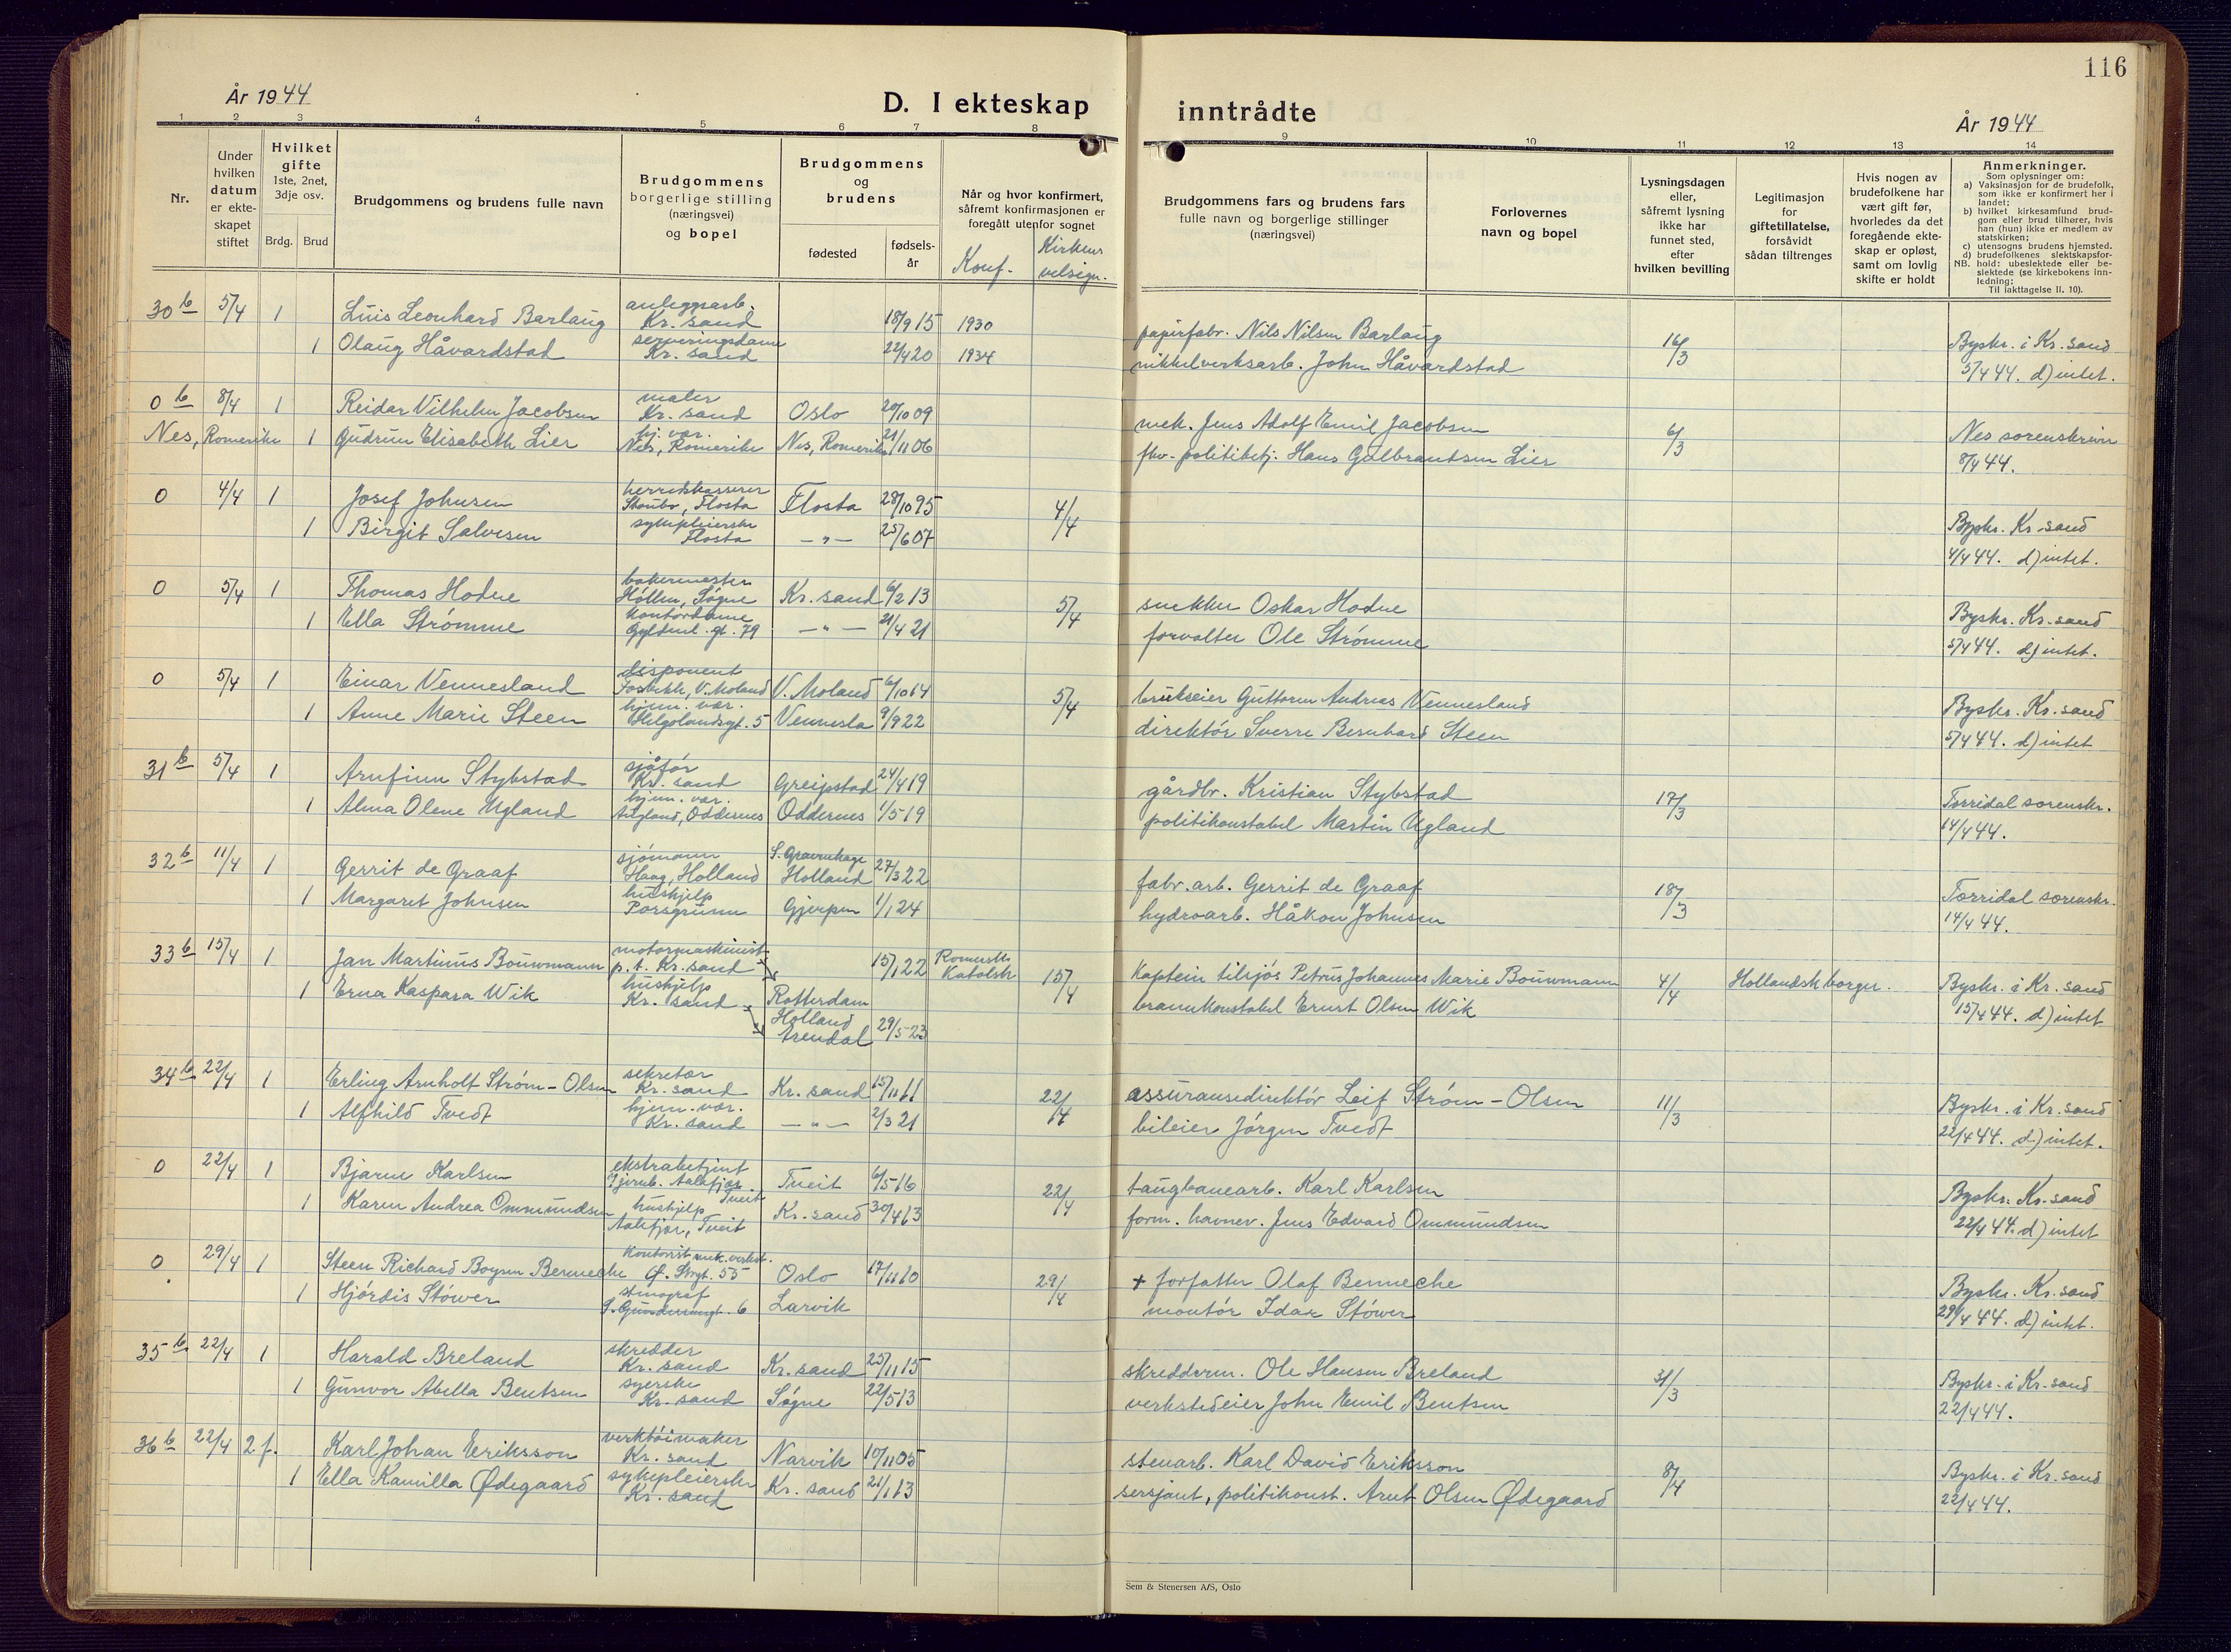 116
År 1944
D. I ekteskap
inntrådte
År 1944
1 2 3 4 5 6 7 8 9 10 11 12 13 14
Nr.
Under hvilken datum er ekte- skapet stiftet
Hvilket gifte 1ste, 2net, 3dje osv.
Brdg. Brud
Brudgommens og brudens fulle navn
Brudgommens borgerlige stilling (næringsvei) og bopel
Brudgommens og brudens
fødested
fødsels- år
Når og hvor konfirmert, såfremt konfirmasjonen er foregått utenfor sognet
Konf. Kirkens velsign.
Brudgommens fars og brudens fars fulle navn og borgerlige stillinger (næringsvei)
Forlovernes navn og bopel
Lysningsdagen eller, såfremt lysning ikke har funnet sted, efter hvilken bevilling
Legitimasjon for giftetillatelse, forsåvidt sådan tiltrenges
Hvis nogen av brudefolkene har vært gift før, hvorledes da det foregående ekte- skap er opløst, samt om lovlig skifte er holdt
Anmerkninger.
Som oplysninger om:
a) Vaksinasjon for de brudefolk, som ikke er konfirmert her i landet;
b) hvilket kirkesamfund brud- gom eller brud tilhører, hvis han (hun) ikke er medlem av statskirken;
c) utensogns brudens hjemsted.
d) brudefolkenes slektskapsfor- hold: ubeslektede eller be- slektede (se kirkebokens inn- ledning:
NB.
Til iakttagelse II. 10).
30 b 5/4 1 Luis Leonhard Barlaug anleggsarb. Kr. sand 18/9 15 1930 papirfabr. Nils Nilsen Barlaug 16/3 Byskr. i Kr. sand
1 Olaug Håvardstad serveringsdame Kr. sand 22/4 20 1934 nikkelverksarb. John Håvardstad 5/4 44. d) intet.
0 b 8/4 1 Reidar Vilhelm Jacobsen maler Kr. sand Oslo 20/10 09 mek. Jens Adolf Emil Jacobsen 6/3 Nes sorenskriv
Nes, Romerike 1 Gudrun Elisabeth Lier hj. vær. Nes, Romerike Nes, Romerike 21/11 06 fhv. politibetj. Hans Gulbrandsen Lier 8/4 44.
0 4/4 1 Josef Johnsen herredskasserer Staubø, Flosta Flosta 28/10 95 4/4 Byskr. Kr. sand
1 Birgit Salvesen sykepleierske Flosta — " — 25/6 07 4/4 44. d) intet.
0 5/4 1 Thomas Hodne bakermester Høllen, Søgne Kr. sand 6/2 13 5/4 snekker Oskar Hodne Byskr. Kr. sand
1 Ella Strømme kontordame Gyldenl. gt. 79 — " — 21/4 21 forvalter Ole Strømme 5/4 44. d) intet.
0 5/4 1 Einar Vennesland disponent V. Moland V. Moland 6/10 14 5/4 brukseier Guttorm Andreas Vennesland Byskr. Kr. sand
1 Anne Marie Steen hjem. vær. Helgolandsgt. 5 Vennesla 9/9 22 direktør Sverre Bernhard Steen 5/4 44. d) intet
31 b 5/4 1 Arnfinn Stybstad sjåfør Kr. sand Greipstad 24/4 19 gårdbr. Kristian Stybstad 17/3 Torridal sorenskr.
1 Alma Olene Ugland hjem. vær. Augland, Oddernes Oddernes 1/5 19 politikonstabel Martin Ugland 14/4 44.
32 b 11/4 1 Gerrit de Graaf sjømann Haag, Holland S. Gravenhage Holland 27/3 22 fabr. arb. Gerrit de Graaf 18/3 Torridal sorenskr.
1 Margaret Johnsen hushjelp Porsgrunn Gjerpen 1/1 24 hydroarb. Håkon Johnsen 14/4 44.
33 b 15/4 1 Jan Martinus Bouwmann motormaskinist p. t. Kr. sand 15/1 22 Romersk Katolsk 15/4 Kaptein tilsjøs Petrus Johannes Marie Bouwmann 4/4 Hollandsk borger. Byskr. i Kr. sand
1 Erna Kaspara Wik hushjelp Kr. sand Rotterdam Holland Arendal 29/5 23 brannkonstabel Ernst Olsen Wik 15/4 44. d) intet
34 b 22/4 1 Erling Arnholt Strøm - Olsen sekretær Kr. sand Kr. sand 15/11 11 22/4 assuransedirektør Leif Strøm - Olsen 11/3 Byskr. i Kr. sand
1 Alfhild Tvedt hjem. vær. Kr. sand — " — 2/3 21 bileier Jørgen Tvedt 22/4 44. d) intet.
0 22/4 1 Bjarne Karlsen ekstrabetjent Aalefjær Tveit Tveit 6/5 16 22/4 taugbanearb. Karl Karlsen Byskr. Kr. sand
1 Karen Andrea Ommundsen hushjelp Aalefjær, Tveit Kr. sand 30/4 13 form. havnev. Jens Edvard Ommundsen 22/4 44. d) intet
0 29/4 1 Steen Richard Boysen Benneche Kontorist mek. verkst. Ø. Strgt. 55 Oslo 17/11 10 29/4 + forfatter Olaf Benneche Byskr. Kr. sand
1 Hjørdis Støwer stenograf 6 Larvik montør Idar Støwer 29/4 44. d) intet.
35 b 22/4 1 Harald Breland skredder Kr. sand Kr. sand 25/11 15 skredderm. Ole Hansen Breland 31/3 Byskr. i Kr. sand
1 Gunvor Abella Bentsen syerske Kr. sand Søgne 22/5 13 verkstedeier John Emil Bentsen 22/4 44.
36 b 22/4 2 f. Karl Johan Eriksson verktøimaker Kr. sand Narvik 10/11 05 stenarb. Karl David Eriksson 8/4 Byskr. i Kr. sand
1 Ella Kamilla Ødegaard sykepleierske Kr. sand Kr. sand 21/1 13 sersjant, politikonst. Arnt Olsen Ødegaard 22/4 44.
Sem & Stenersen A/S, Oslo